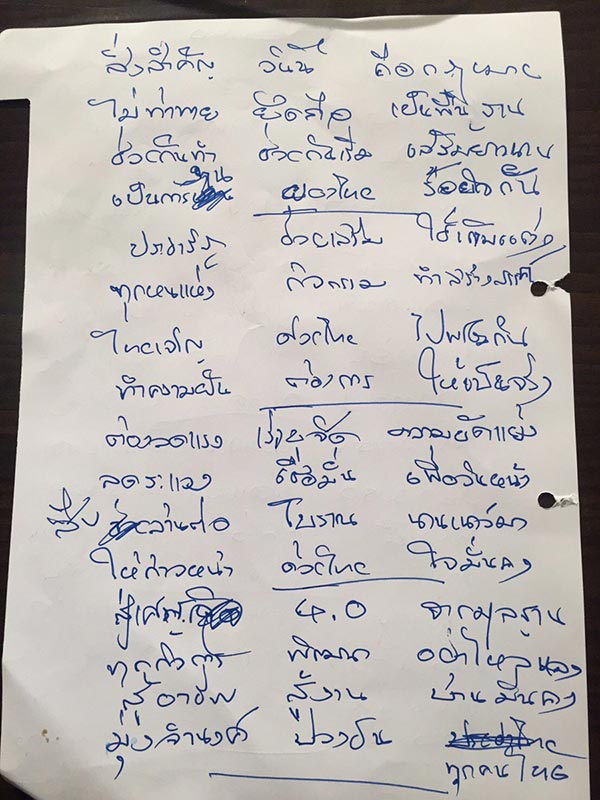 สิ่งสำคัญ วันนี้ ถือกฎหมาย
ไม่ท้าทาย ยึดถือ เป็นพื้นฐาน
ช่วยกันทำ ช่วยกันเริ่ม เสริมยาวนาน
เป็นการ ของไทย ร้อยใจกัน
ประชารัฐ ช่วยเสริม ใช้เติมแต่ง
ทุกหนแห่ง กิจกรรม ทำสร้างสรรค์
ไทยเจริญ ช่วยไทย ไปพร้อมกัน
ทำความฝัน ต้องการ ให้เป็นจริง
ต้องลดแรง เร่งขจัด ความขัดแย้ง
ลดระแวง เชื่อมั่น เพื่อวันหน้า
สืบ สานต่อ โบราณ นานเนาว์มา
ให้ก้าวหน้า ด้วยไทย ใจมั่นคง
สู่ 4.0 จากมูลฐาน
ทุกกิจการ พัฒนา อย่าใหลหลง
สู้อาชีพ สู้งาน บ้านมั่นคง
มุ่งจำนงค์ ปวงชน ทุกคนไทย